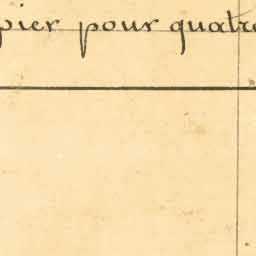 pier pour quatre